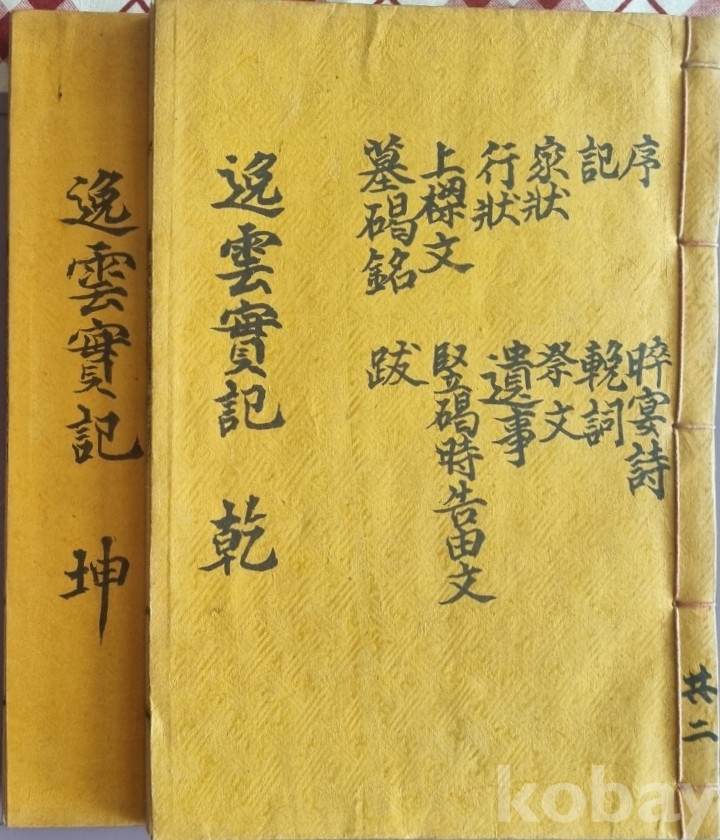 共二
序
記
家狀
行狀
上樑文
墓碣銘
晬宴詩
輓詞
祭文
遺事
竪碣時告由文
跋
逸雲實記 乾
逸雲實記 坤
kobay